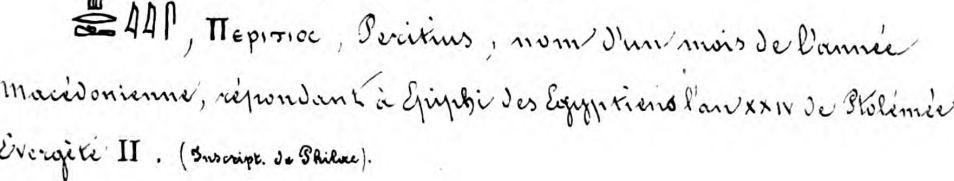 , Περιτιοϲ, Peritius, nom d'un mois de l'année
Macédonienne, répondant à Epiphi des Egyptiens l'an XXIV de Ptolémée
Évergète II. (Inscript. de Philae).